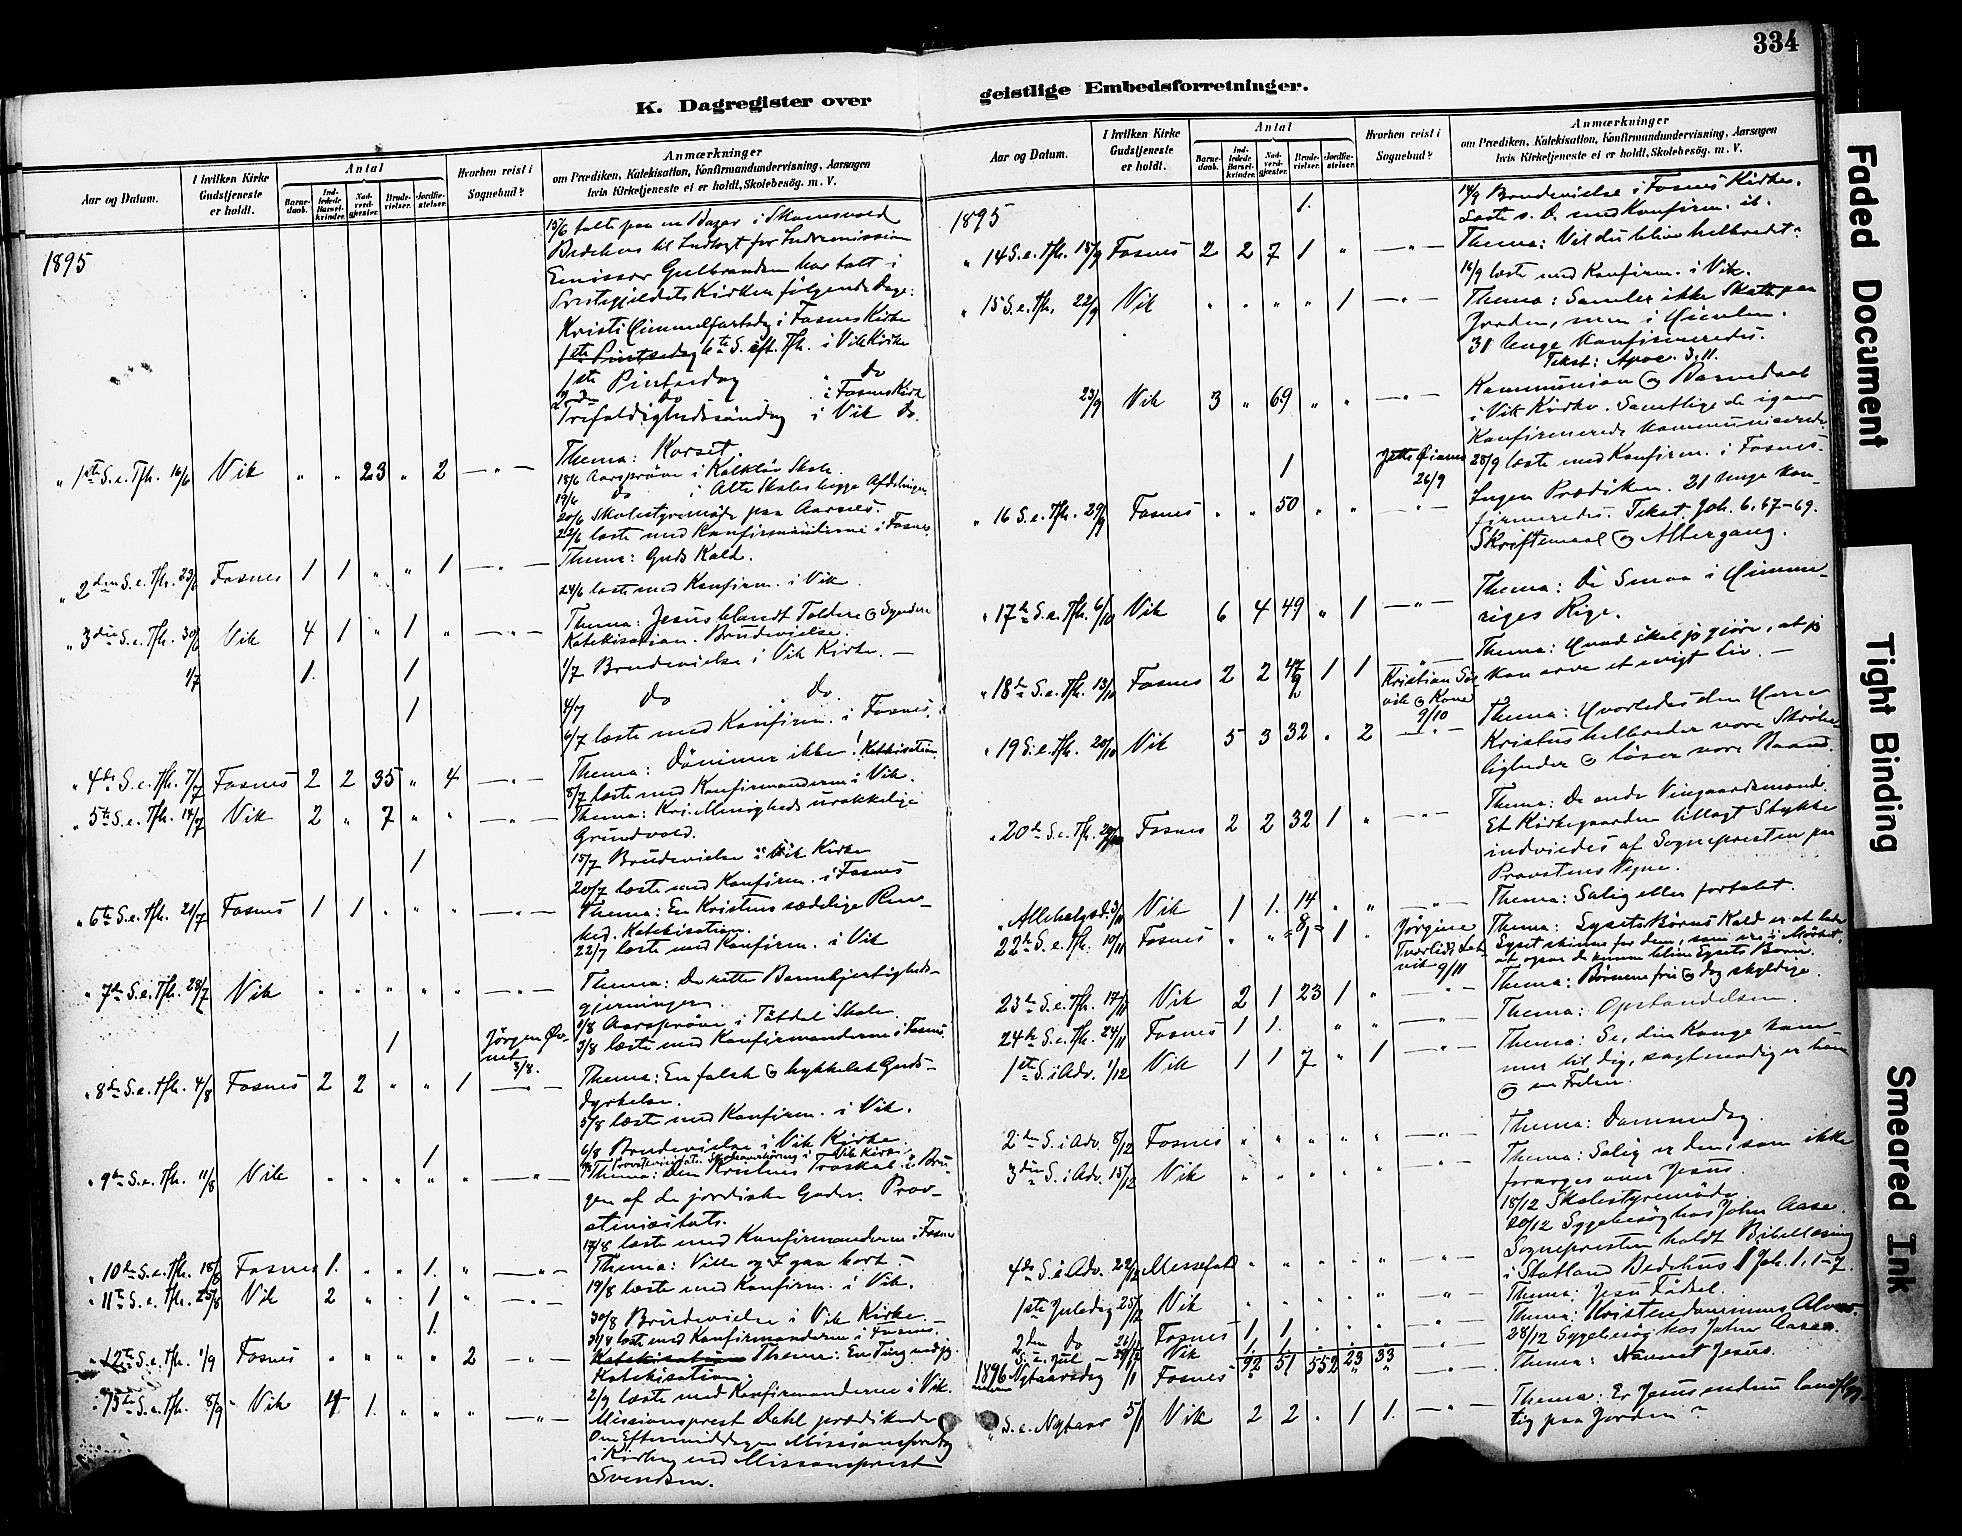 334
K. Dagregister over geistlige Embedsforretninger.
Aar og Datum.
I hvilken Kirke Gudstjeneste er holdt.
Antal
Barne-daab.
Ind-ledede Barsel-kvinder.
Nad-verd-gjester.
Brude-vielser.
Jordfæ-stelser.
Hvorhen reist i Sognebud?
Anmærkninger
om Prædiken, Katekisation, Konfirmandundervisning, Aarsagen
hvis Kirketjeneste ei er holdt, Skolebesög. m. V.
1895
13/6 talte paa en Bazar i
Bedehus til Indtægt for Indremission
Emissær Gulbrandsen har talt i
Prestegjeldets Kirker følgende Dage:
Kristi Himmelfartsdag i Fosnes Kirke
i Vik Kirke
1ste Pintsedag " do
2den do i Fosnes Kirke
Trefoldighedssøndag i Vik do.
" 1ste S. e. Tfh. 16/6 Vik " " 23 " 2 — " — Thema: Korset.
18/6 Aarsprøve i Skole.
19/6 do i Skoles begge Afdelinger.
20/6 Skolestyremøde paa Aarnes.
22/6 læste med Konfirmanterne i Fosnes.
" 2den S. e. Tfh. 23/6 Fosnes 1 1 " " 1 — " — Thema: Guds Kald.
24/6 læste med Konfirm. i Vik.
" 3die S. e. Tfh. 30/6 Vik 4 1 " 1 " — " — Thema: Jesus blandt Toldere & Syndere
Katekisation. Brudevielse.
1/7 1. 1 1/7 Brudevielse i Vik Kirke. —
1 4/7 do do.
6/7 læste med Konfirm. i Fosnes.
" 4de S. e. Tfh. 7/7 Fosnes 2 2 35 " 4 — " — Thema: Dømmer ikke! Katekisation
8/7 læste med Konfirmanderne i Vik.
" 5te S. e. Tfh. 14/7 Vik 2 " 7 " " — " — Thema: Kr. Menigheds urokkelige
Grundvold.
1 15/7 Brudevielse i Vik Kirke
20/7 læste med Konfirm. i Fosnes
" 6te S. e. Tfh. 21/7 Fosnes 1 1 " " " — " — Thema: En Kristens sædelige Ren-
hed. Katekisation.
22/7 læste med Konfirm. i Vik
" 7de S. e. Tfh. 28/7 Vik " " " " " — " — Thema: De rette Barmhjertigheds-
gjerninger.
Aarsprøve i Tötdal Skole.
1 Jørgen
3/8.
3/8 læste med Konfirmanderne i Fosnes.
" 8de S. e. Tfh. 4/8 Fosnes 2 2 " " 1 — " — Thema: En falsk & hyklelsk Guds-
dyrkelse.
5/8 læste med Konfirm. i Vik.
1 6/8 Brudevielse i Vik Kirke.
" 9de S. e. Tfh. 11/8 Vik " " " " " — " — Thema: Den Kristnes Troskab i Bru-
gen af de jordiske Goder. Prov-
stivisitats.
17/8 læste med Konfirmanderne i Fosnes
" 10de S. e. Tfh. 18/8 Fosnes 1. " " 1. " — " — Thema: Ville og I gaa bort?
19/8 læste med Konfirm. i Vik.
" 11te S. e. Tfh. 25/8 Vik 2 " " 1 " — " —
1. 30/8 Brudevielse i Vik Kirke. —
31/8 læste med Konfirmanderne i Fosnes.
" 12te S. e. Tfh. 1/9 Fosnes " " " " 2 — " — Katekisation Thema: En Ting ved jeg.
Katekisation.
2/9 læste med Konfirmanderne i Vik.
" 13de S. e. Tfh. 8/9 Vik 4 1. " " " — " — Missionsprest Dahl prædikende
Om Eftermiddagen Missionsforedrag
i Kirken ved Missionsprest
Svendsen.
Aar og Datum.
I hvilken Kirke Gudstjeneste er holdt.
Antal
Barne-daab.
Ind-ledede Barsel-kvinder.
Nad-verd-gjester.
Brude-vielser.
Jordfæ-stelser.
Hvorhen reist i Sognebud?
Anmærkninger
om Prædiken, Katekisation, Konfirmandundervisning, Aarsagen
hvis Kirketjeneste ei er holdt, Skolebesög. m. V.
1895
1. 14/9 Brudevielse i Fosnes Kirke.
Læste s. D. med Konfirm. ib.
" 14 S. e. Tfh. 15/9 Fosnes 2 2 7 1 " — " — Thema: Vil du blive helbredet?
16/9 læste med Konfirm. i Vik.
" 15 S. e. Tfh. 22/9 Vik " " " " 1 — " — Thema: Samler ikke Skatte paa
Jorden, men i Himlen.
31 Unge Konfirmeredes.
Tekst: Apoc. 3, 11.
23/9 Vik 3 " 69 " " — " — Kommunion & Barnedaab
i Vik Kirke. Samtlige de igaar
Konfirmerede kommunicerede.
1 26/9
28/9 læste med Konfirm. i Fosnes.
" 16 S. e. Tfh. 29/9 Fosnes " " 50 " " — " — Ingen Prædiken. 21 Unge kon-
firmeredes. Tekst Joh. 6, 67-69.
Skriftemaal & Altergang.
" 17de S. e. Tfh. 6/10 Vik 6 4 49 " 1 — " — Thema: De Smaa i Himme-
riges Rige.
" 18de S. e. Tfh. 13/10 Fosnes 2 2 47 1 1 — " — Thema: Hvad skal jeg gjøre, at jeg
kan arve et evigt Liv. —
Kristian
& Kone
9/10
" 19 S. e. Tfh. 20/10 Vik 5 3 32 " 2 — " — Thema: Hvorledes den Herre
Kristus helbreder vore Skrøbe-
ligheder & løser vore Baand.
" 20de S. e. Tfh. Fosnes 2 2 32 1 " — " — Thema: De onde Vingaardsmænd.
Et Kirkegaarden tillagt Stykke
indviedes af Sognepresten paa
Provstens Vegne.
" Allehelgsd. 3/11 Vik 1 1. 14 " " — " — Thema: Salig eller fortabt.
22de S. e. Tfh. 10/11 Fosnes " " 8 1 " Jørgine
9/11
Thema: Lysets Børns Kald er at lade
Lyset skinne for dem, som ere i Mørket,
at ogsaa de kunne blive Lysets Børn.
23de S. e. Tfh. 17/11 Vik 2 1 23 1 " — " — Thema: Børnene fri & dog skyldige.
24de S. e. Tfh. 24/11 Fosnes 1 1. " " — " — Thema: Opstandelsen.
1ste S. i Adv. 1/12 Vik 1 1 7 " 1 — " — Thema: Se, din Konge kom-
mer til dig, sagtmodig er han
& en Frelser.
2den S. i Adv. 8/12 Fosnes " " " " " — " — Thema: Dommedag.
3die S. i Adv. 15/12 Vik " " " " " — " — Thema: Salig er den, som ikke
forarges over Jesus.
18/12 Skolestyremøde
20/12 Sygebesøg hos John Aasen.
4de S. i Adv. 22/12 Messefald " " " " " — " — Sognepresten holdt Bibellæsning
i Statland Bedehus 1 Joh. 1, 1-7.
1ste Juledag 25/12 Vik " " " " " — " — Thema: Jesu Fødsel.
2den do 26/12 Fosnes 1 1 " " " — " — Thema: Kristendommens Alvor.
28/12 Sygebesøg hos John Aasen.
S. e. Jul 29/12 Vik 1 1
92 51 552 23 33
1896 Nytaarsdag 1/1 Fosnes — " — Thema: Navnet Jesus.
" S. e. Nytaar 5/1 Vik 2 2 " 1 1. — " — Thema: Er Jesus endnu landflyg-
tig paa Jorden?
Faded Document
Tight Binding
Smeared Ink